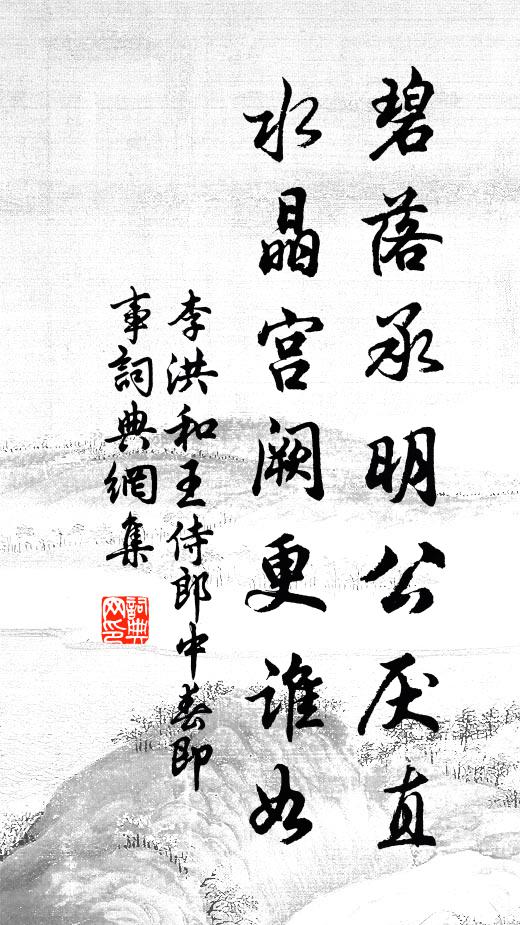 碧落承明公厌直
水晶宫阙更谁如
李洪和王侍郎中春即
事詞典網集
詞典
网印